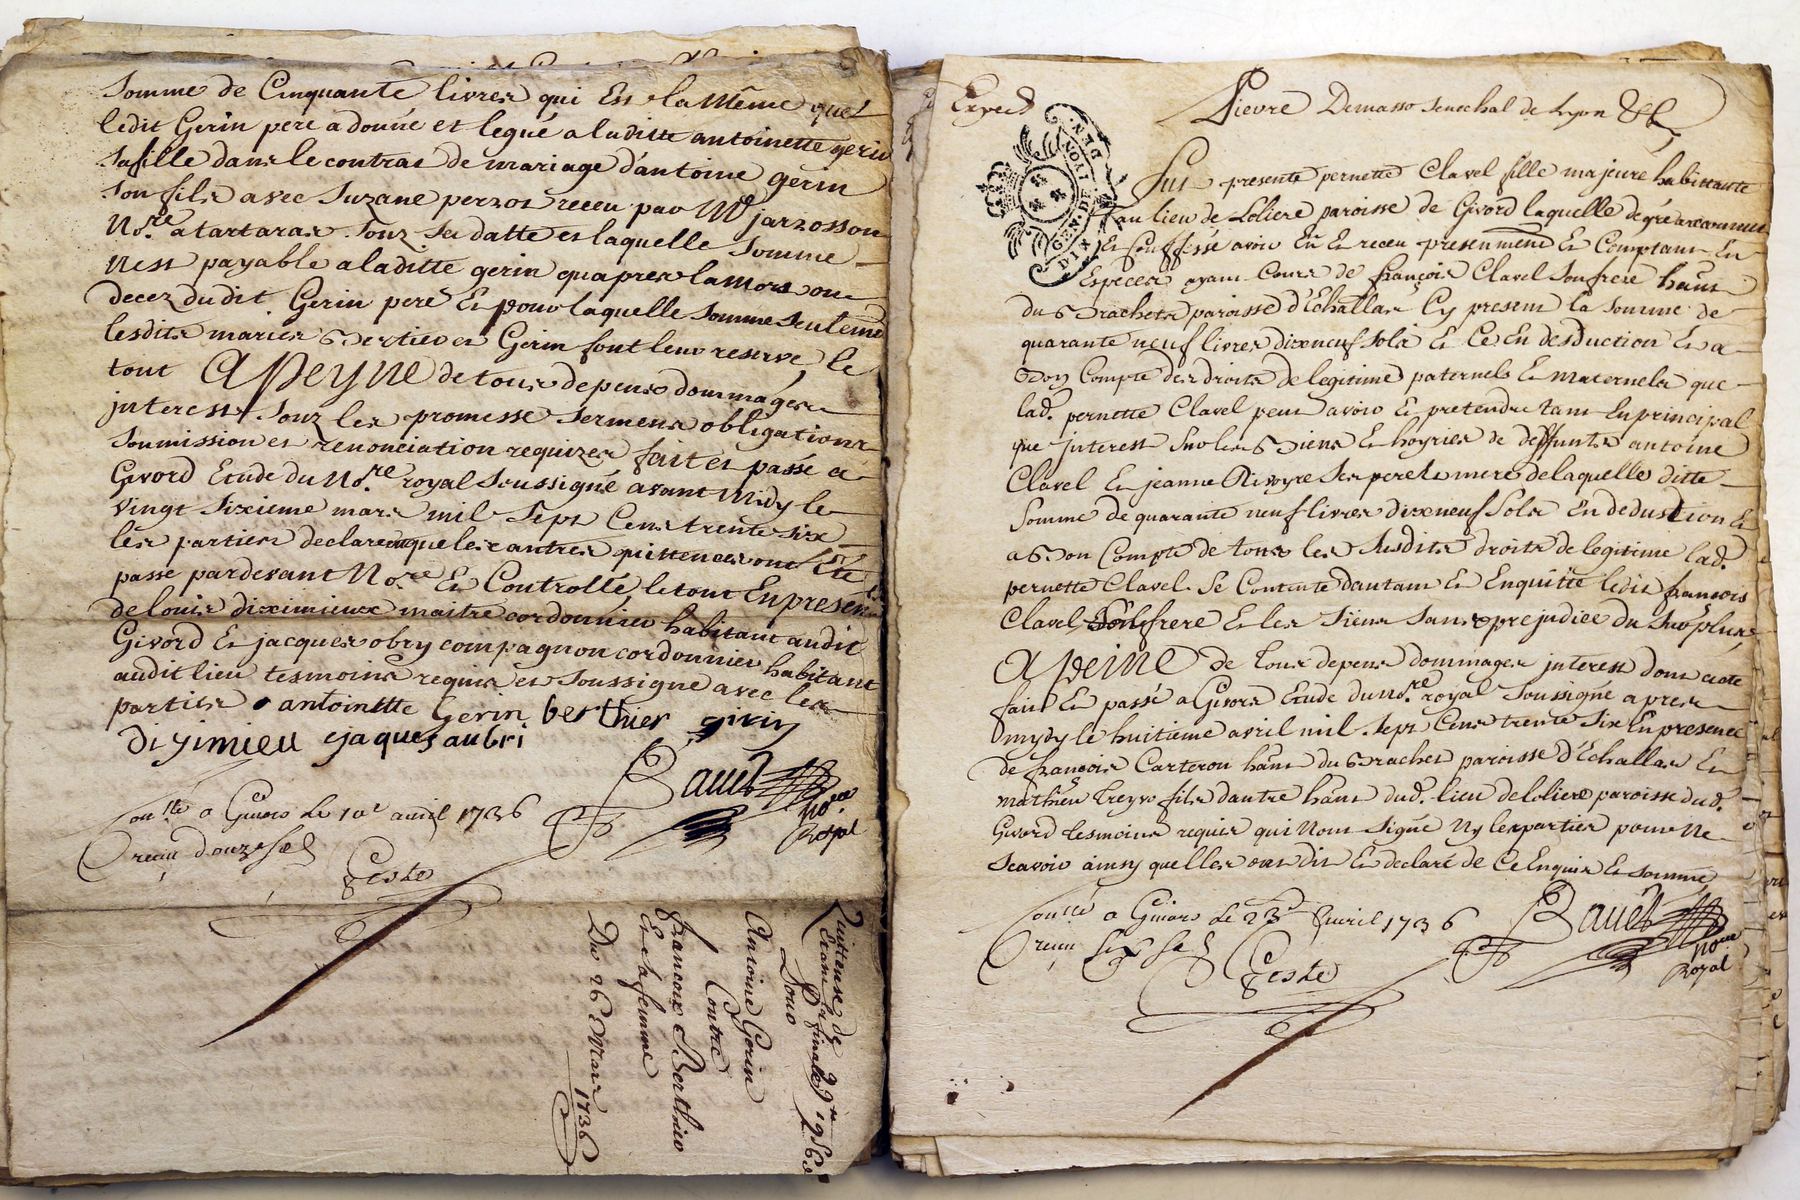 Somme de Cinquante livres qui Est la Même que
ledit Gerin pere a donné et legué a laditte antoinette gerin
safille dans le contrat de mariage d'antoine gerin
son fils avec Suzane perzot receu par Me jarrosson
No.re a tartaras Souz sa datte et laquelle Somme
nest payable a laditte gerin quapres la mort ou
decez dudit Gerin pere Et pour laquelle Somme Seulemt
lesdits mariés Bertier et Gerin font leur reserve, le
tout a peyne de tous depens dommages
interest, Souz les promesse Serment obligations
Soumission et renonciation requizes fait et passé a
Givord Etude du No.re royal Soussigné avant Midy le
vingt Sixieme mars mil Sept Cens trente Six
les parties declarent que les autres quittences ont Eté
passé pardevant No.re Et Controllé, le tout En presence
de louis diximieux maitre cordonnier habitant audit
Givord Et jacques obry compagnon cordonnier habitant
audit lieu tesmoins requis et Soussigné avec les
parties antoinette Gerin berthier girin
diximieu jaques aubri
Bauet
No.re
Royal
Con.llé a Givors le 10e avril 1736
receu douze sol
Geste
Quittence de
Pour
Antoine Gerin
Contre
francoix Berthier
Et sa femme
Du 26 Mars 1736
Exped
Pierre Demasso Senechal de Lyon &c
GEN. DE LYON
DIX DEN.
Fut presente pernette Clavel fille majeure habittante
au lieu de Loliere paroisse de Givord laquelle de gré a
Et Confessé avoir Eu Et receu presentment Et Comptant En
Especes ayant Cours de françois Clavel Son frere hãnt
du Brachet paroisse d'Echallas Cy present la Somme de
quarante neuf livres dixneuf Sols Et Ce En desduction Et a
Bon Compte des droits de legitime paternels Et Maternels que
lad. pernette Clavel peut avoir Et pretendre tant En principal
que interest Sur les Biens Et hoyries de deffunts antoine
Clavel Et jeanne Rivoyre Ses pere Et mere de laquelle ditte
Somme de quarante neuf livres dixneuf Sols En deduction Et
a Bon Compte de tous les Susdits droits de legitime lad.
pernette Clavel Se Contente dautant Et En quitte ledit françois
Clavel Son frere Et les Siens Sans prejudice du Surplus
A peine de tous depens dommages interest dont acte
fait Et passé a Givors Etude du No.re royal Soussigné apres
mydy le huitieme avril mil Sept Cens trente Six En presence
de françois Carteron hãnt du Brachet paroisse d'Echallas Et
Mathieu Treyvo fils dautre hãnt dud. lieu de loliere paroisse dud.
Givord tesmoins requis qui N'ont Signé Ny les parties pour Ne
Scavoir ainsy quelles ont dit Et declaré de Ce Enquis Et Sommé
Con.llé a Givors le 23e avril 1736
receu six sol
Geste
Bauet
No.re
Royal